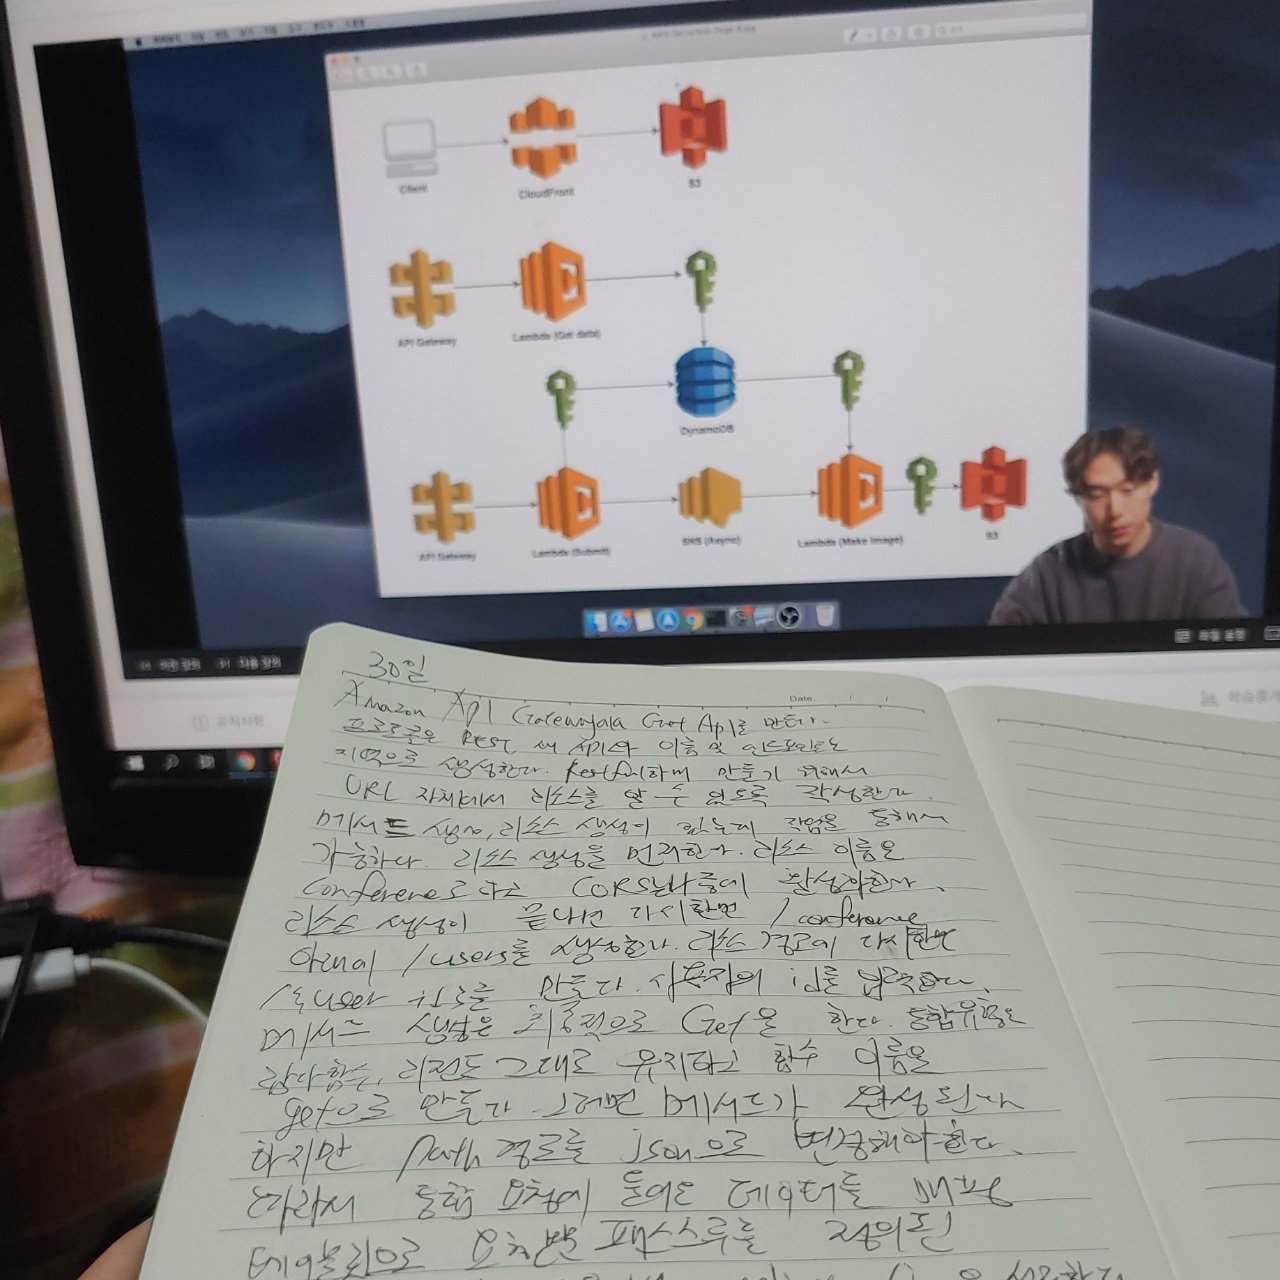 Client
CloudFront
S3
API Gateway
Lambda (Get data)
DynamoDB
API Gateway
Lambda (Submit)
SNS (Async)
Lambda (Make Image)
S3
이전 강의
다음 강의
화질 설정
공지사항
Date.
30일
Amazon API Get API를 만든다.
프로토콜은 REST, 새 API와 이름 및 엔드포인트는
지역으로 생성한다. 만들기 위해서
URL 자체에서 리소스를 알 수 있도록 작성한다.
메서드 생성, 리소스 생성이 있는데 작업을 통해서
가능하다. 리소스 생성을 먼저한다. 리소스 이름은
Conference로 하고 CORS는 나중에 활성화한다.
리소스 생성이 끝나면 다시한번 /conference
아래에 /users를 생성한다. 리소스 경로에 다시한번
user 만든다. 사용자의 id를 입력한다.
메서드 생성은 최종적으로 Get을 한다. 통합유형은
람다함수, 리전도 그대로 유지하고 함수 이름을
get으로 만든다. 그러면 메서드가 완성된다
하지만 path 경로를 json으로 변경해야한다.
따라서 통합 요청에 들어온 데이터를 매핑
템플릿으로 요청본문 패스스루를 정의된